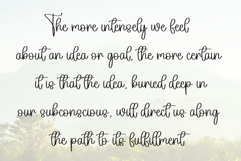 The more intensely we feel
about an idea or goal, the more certain
it is that the idea, buried deep in
our subconscious, will direct us along
the path to its fulfillment